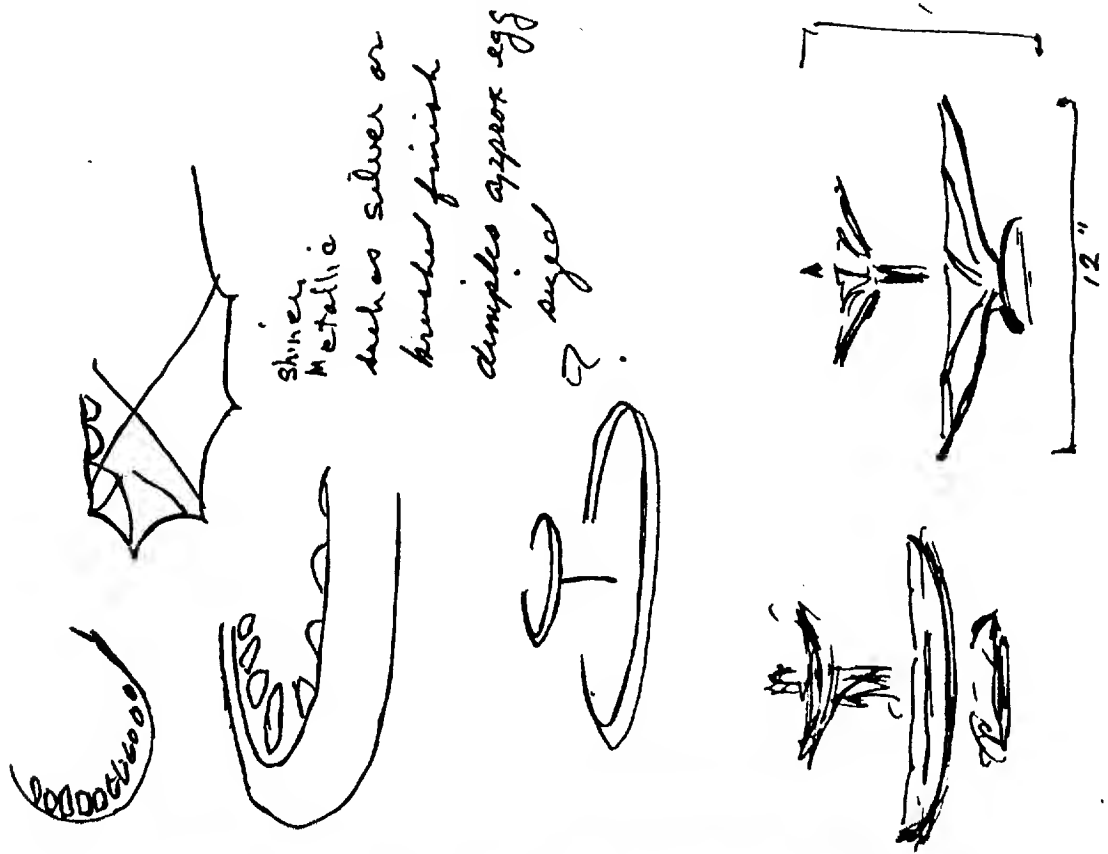 shiner,
Metallic
such as silver or
brushed finish
dimples approx egg
size
?
12"